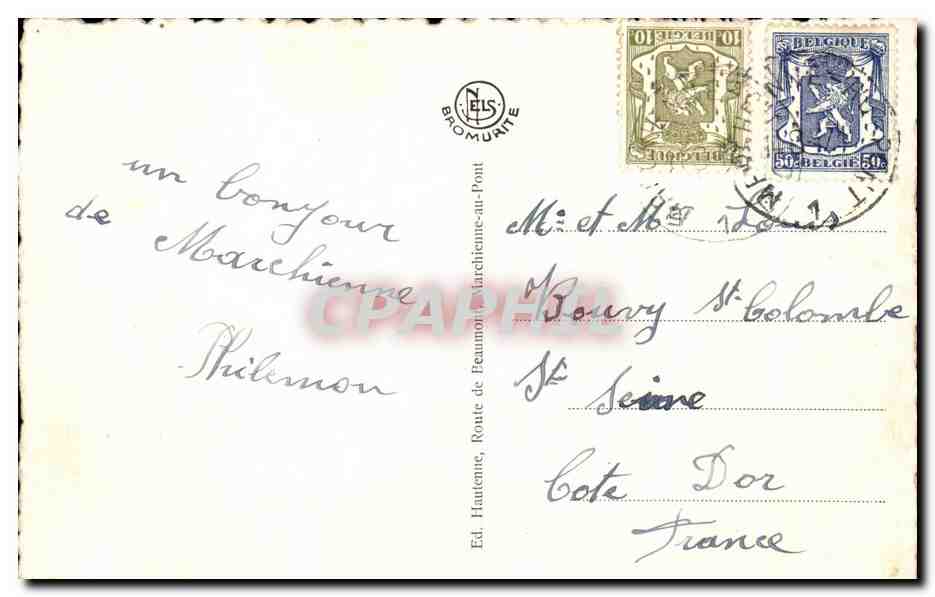 un bonjour
de Marchienne
Philemon
NELS
BROMURITE
Ed. Hautenne, Route de Beaumont, Marchienne-au-Pont
10 BELGIE 10
BELGIQUE
BELGIQUE
50c BELGIE 50c
Mr et Me Louis
Bouvy St Colombe
St Seine
Cote Dor
France
CPAPHIL